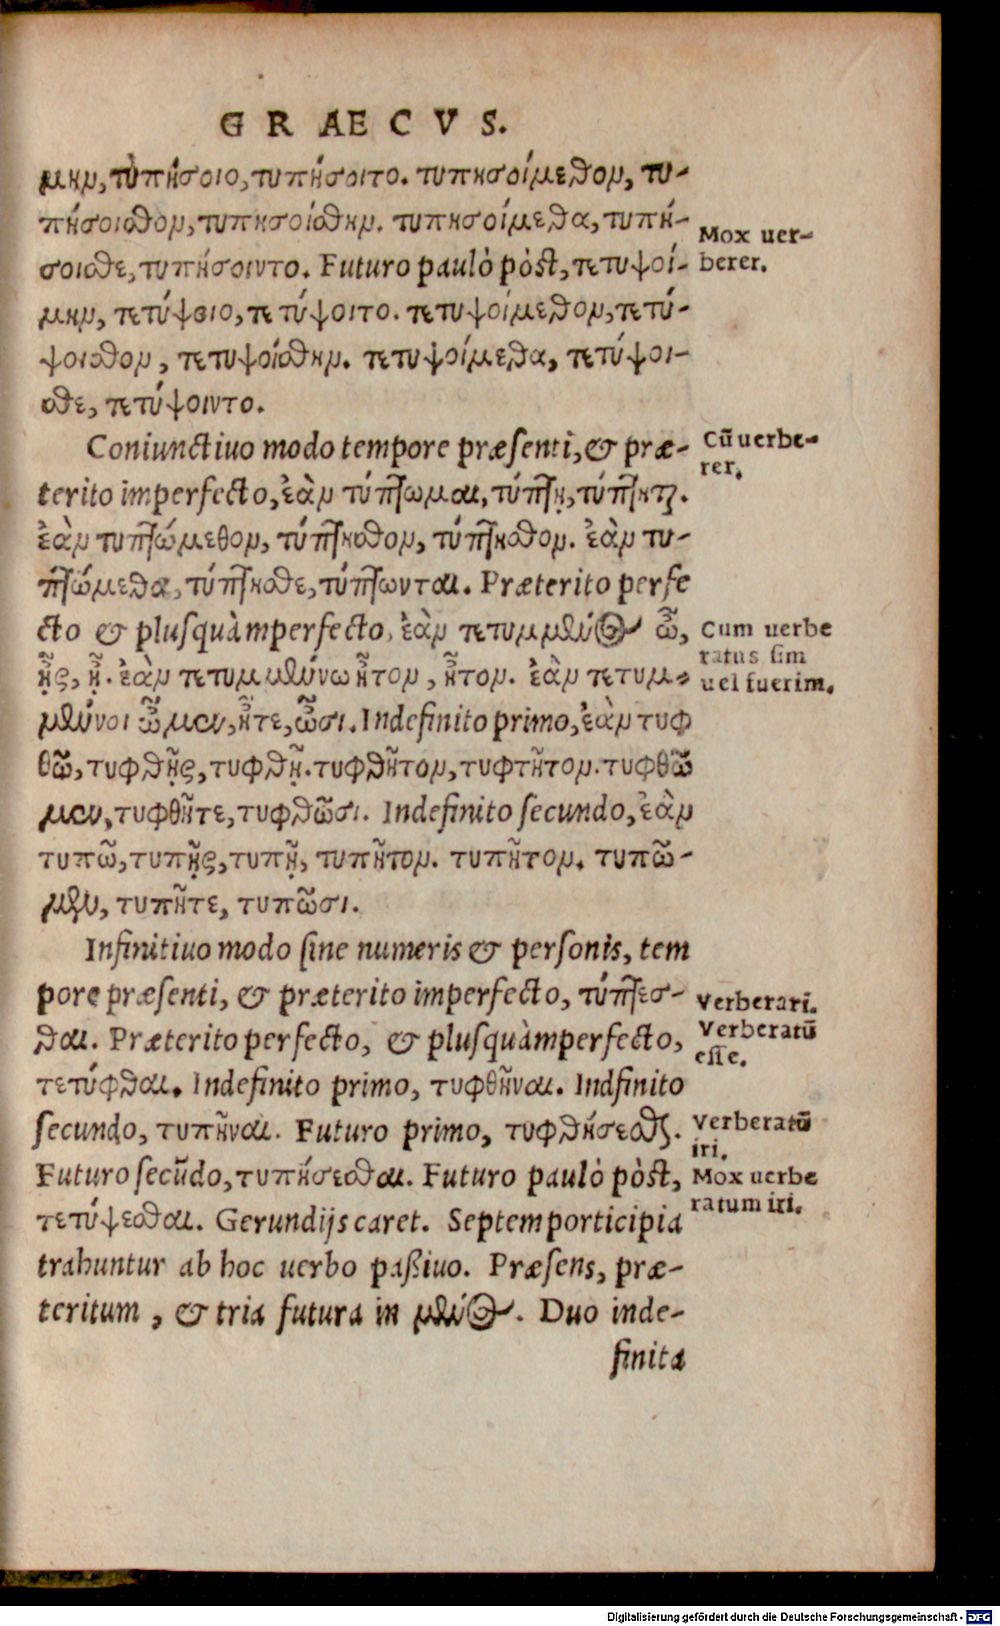 GRAECVS.
μην, τυπήσοιο, τυπήσοιτο. τυπησοίμεθον, τυ-
πήσοισθον, τυπησοίσθην. τυπησοίμεθα, τυπή-
σοισθε, τυπήσοιντο. Futuro paulò pòst, τετυψοί-
μην, τετύψοιο, τετύψοιτο. τετυψοίμεθον, τετύ-
ψοισθον, τετυψοίσθην. τετυψοίμεθα, τετύψοι-
σθε, τετύψοιντο.
Mox uer-
berer.
Coniunctiuo modo tempore præsenti, & præ-
terito imperfecto, ἐὰν τύπτωμαι, τύπτῃ, τύπτηται.
ἐὰν τυπτώμεθον, τύπτησθον, τύπτησθον. ἐὰν τυ-
πτώμεθα, τύπτησθε, τύπτωνται. Præterito perfe
cto & plusquàmperfecto, ἐὰν τετυμμένος ὦ,
ᾖς, ᾖ. ἐὰν τετυμμένω ἦτον, ἦτον. ἐὰν τετυμ-
μένοι ὦμεν, ἦτε, ὦσι. Indefinito primo, ἐὰν τυφ
θῶ, τυφθῇς, τυφθῇ. τυφθῆτον, τυφτῆτον. τυφθῶ
μεν, τυφθῆτε, τυφθῶσι. Indefinito secundo, ἐὰν
τυπῶ, τυπῇς, τυπῇ, τυπῆτον. τυπῆτον. τυπῶ-
μεν, τυπῆτε, τυπῶσι.
Cũ uerbe-
rer.
Cum uerbe
ratus sim
uel fuerim.
Infinitiuo modo sine numeris & personis, tem
pore præsenti, & præterito imperfecto, τύπτεσ-
θαι. Præterito perfecto, & plusquàmperfecto,
τετύφθαι. Indefinito primo, τυφθῆναι. Indfinito
secundo, τυπῆναι. Futuro primo, τυφθήσεσθαι.
Futuro secũdo, τυπήσεσθαι. Futuro paulò pòst,
τετύψεσθαι. Gerundijs caret. Septem porticipia
trahuntur ab hoc uerbo paßiuo. Præsens, præ-
teritum, & tria futura in μένος. Duo inde-
finita
Verberari.
Verberatũ
esse.
Verberatũ
iri.
Mox uerbe
ratum iri.
Digitalisierung gefördert durch die Deutsche Forschungsgemeinschaft - DFG